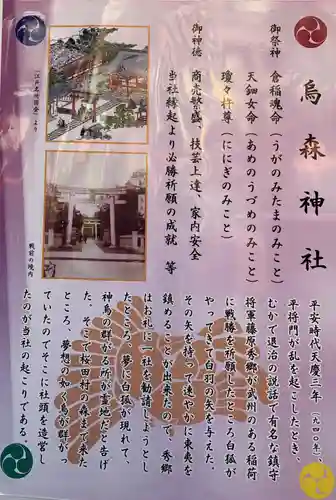 烏森神社
御祭神 倉稲魂命(うがのみたまのみこと)
天鈿女命(あめのうづめのみこと)
瓊々杵尊(ににぎのみこと)
御神徳 商売繁盛、技芸上達、家内安全
当社縁起より必勝祈願の成就 等
(江戸名所図会)より
戦前の境内
平安時代天慶三年(九四〇年)、
平将門が乱を起こしたとき、
むかで退治の説話で有名な鎮守
将軍藤原秀郷が武州のある稲荷
に戦勝を祈願したところ白狐が
やってきて白羽の矢を与えた。
その矢を持って速やかに東夷を
鎮めることが出来たので、秀郷
はお礼に一社を勧請しようとし
たところ、夢に白狐が現れて、
神鳥の群がる所が霊地だと告げ
た。そこで桜田村の森まできた
ところ、夢想の如く烏が群がっ
ていたのでそこに社頭を造営し
たのが当社の起こりである。